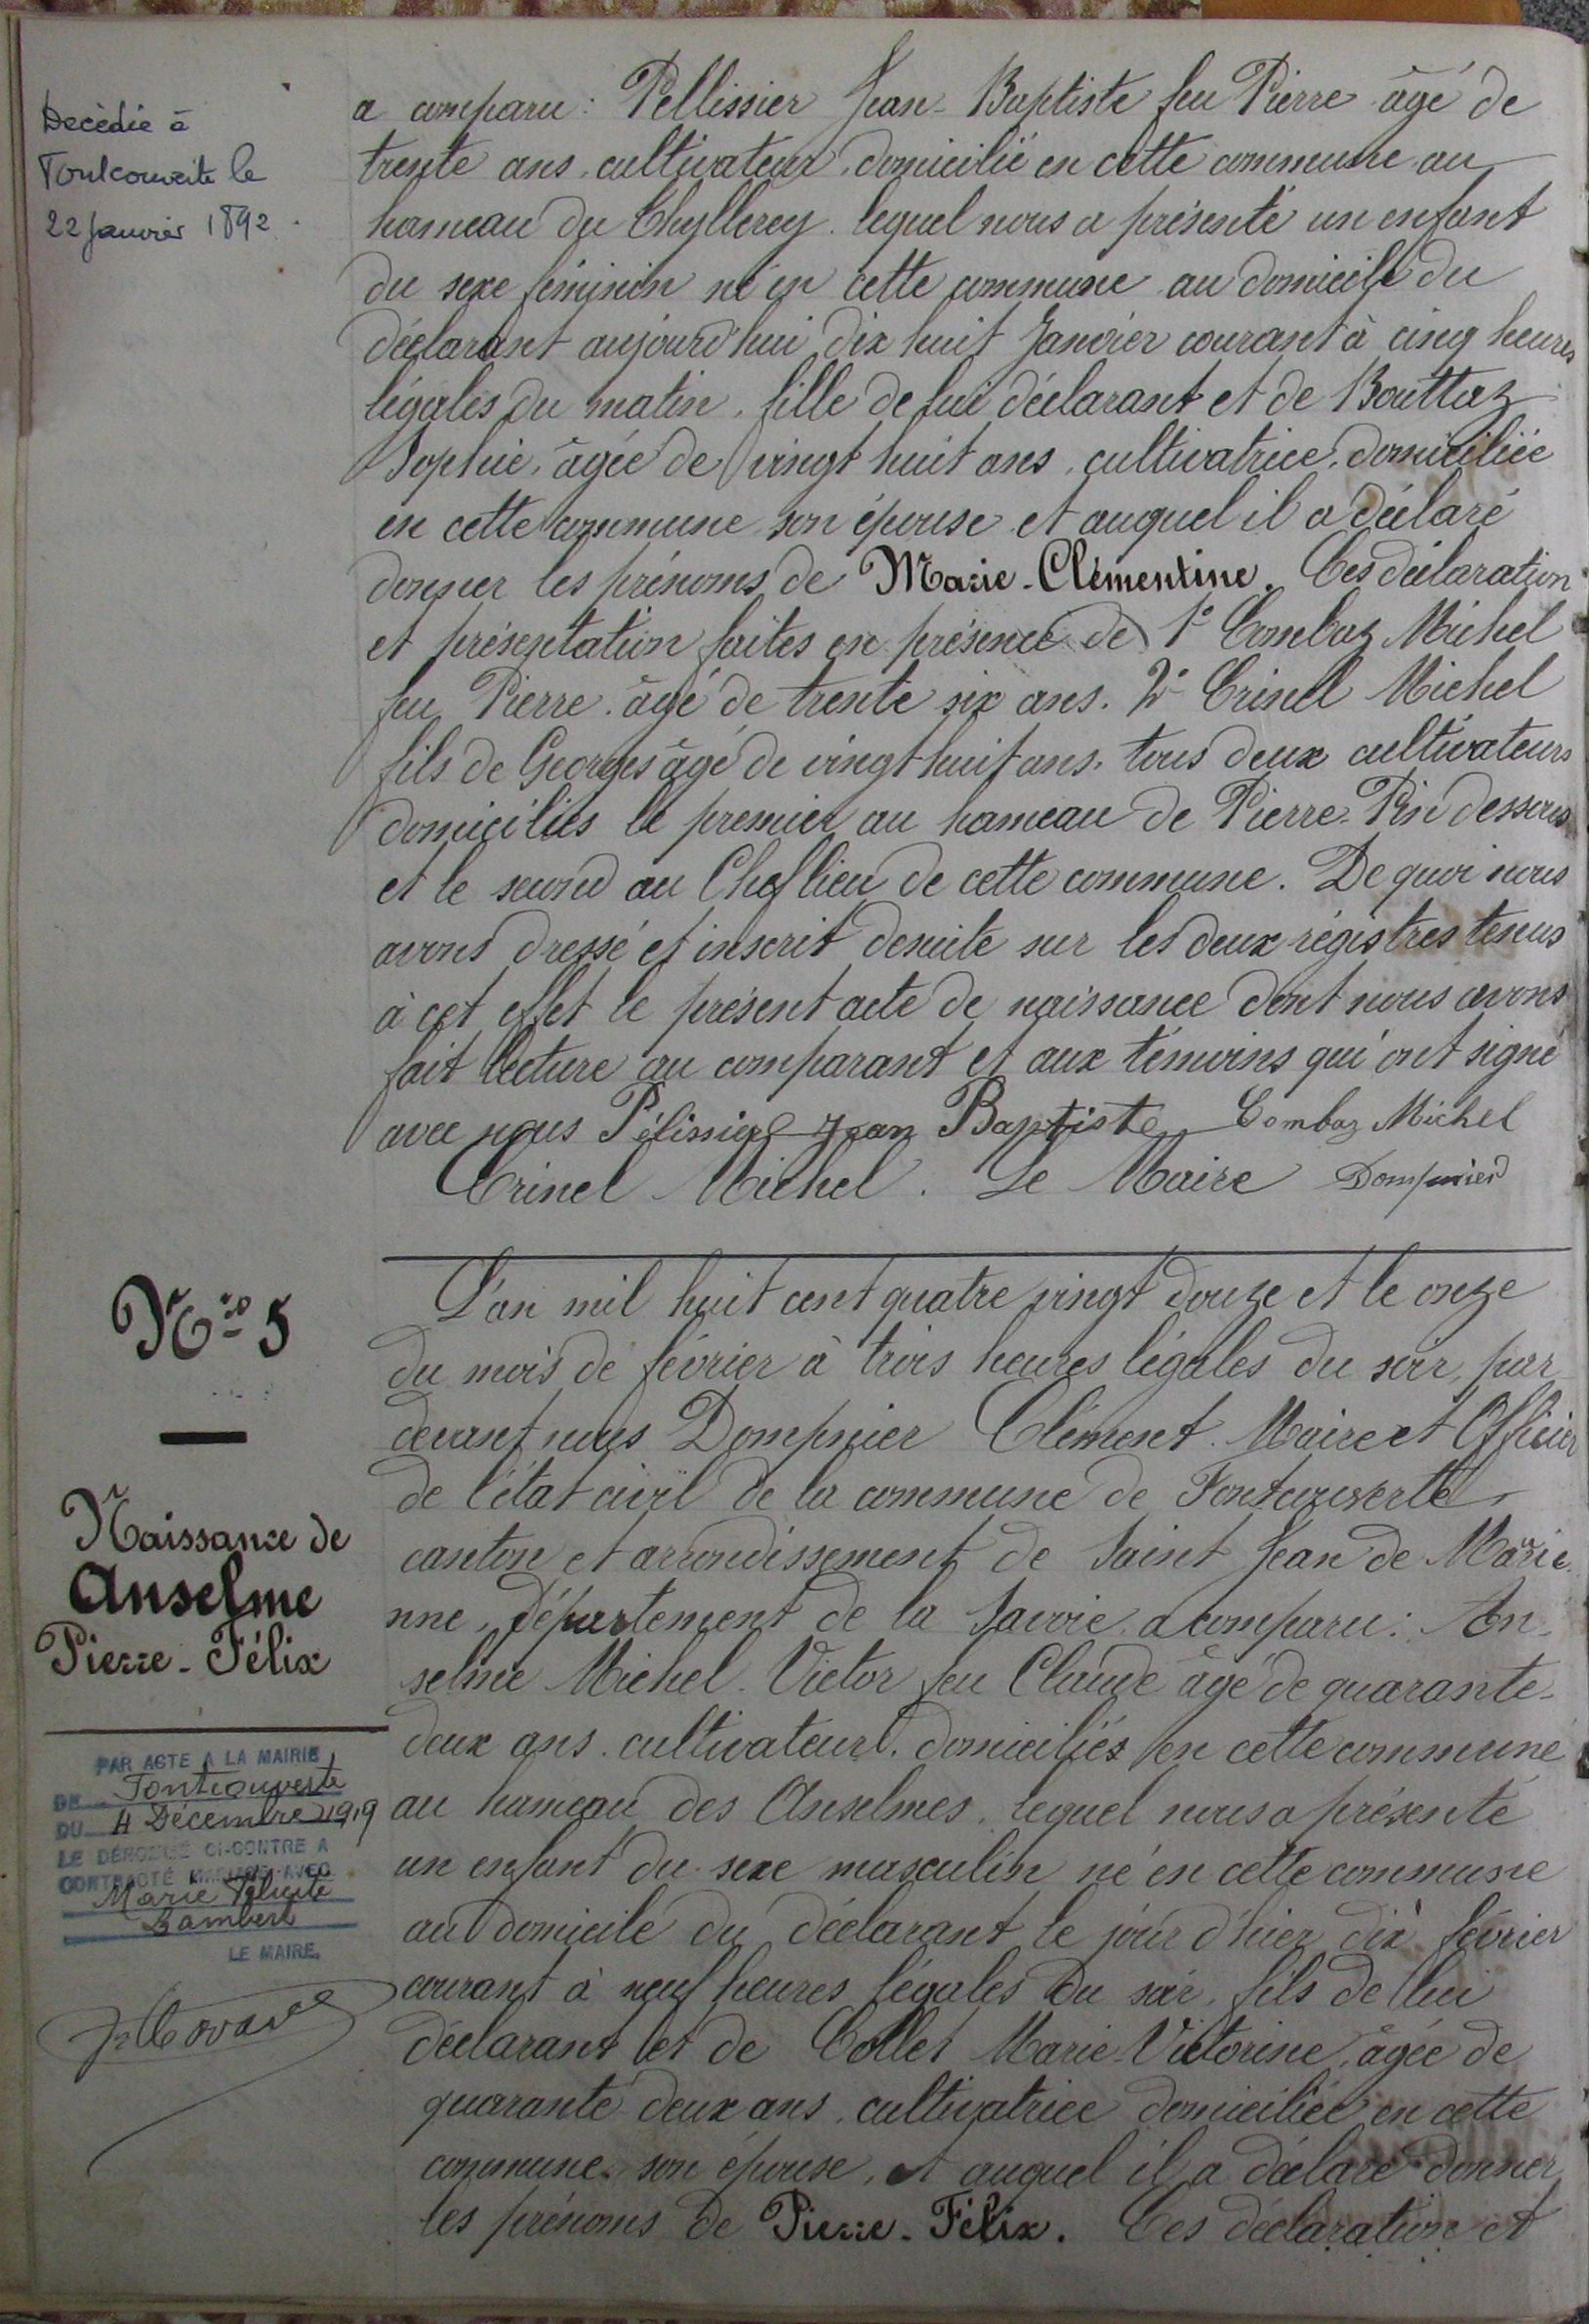 Decédée à
Fontcouverte le
22 janvier 1892.
a comparu : Pellissier Jean-Baptiste feu Pierre âgé de
trente ans, cultivateur, domicilié en cette commune au
hameau du Chylleray. lequel nous a présenté un enfant
du sexe féminin né en cette commune au domicile du
déclarant aujourd'hui dix huit Janvier courant à cinq heures
légales du matin, fille de lui déclarant et de Bouttaz
Sophie, âgée de vingt huit ans, cultivatrice, domiciliée
en cette commune son épouse et auquel il a déclaré
donner les prénoms de Marie-Clémentine. Ces déclaration
et présentation faites en présence de 1° Combaz Michel
feu Pierre âgé de trente six ans. 2° Crinel Michel
fils de Georges âgé de vingt huit ans, tous deux cultivateurs
domiciliés le premier au hameau de Pierre-Pin dessous
et le second au Cheflieu de cette commune. De quoi nous
avons dressé et inscrit desuite sur les deux régistres tenus
à cet effet le présent acte de naissance dont nous avons
fait lecture au comparant et aux témoins qui ont signé
avec nous Pélissier Jean Baptiste Combaz Michel
Crinel Michel. Le Maire Dompnier
N.ro 5
Naissance de
Anselme
Pierre-Félix
PAR ACTE A LA MAIRIE
DE Fontcouverte
DU 4 Décembre 1919
LE DÉNOMMÉ CI-CONTRE A
CONTRACTÉ MARIAGE AVEC
Marie Félicité
Lambert
LE MAIRE,
L'an mil huit cent quatre vingt douze et le onze
du mois de février à trois heures légales du soir, par
devant nous Dompnier Clément. Maire et Officier
de l'état civil de la commune de Fontcouverte,
canton et arrondissement de Saint Jean de Maurie
nne, département de la Savoie, a comparu : An-
selme Michel-Victor feu Claude âgé de quarante-
deux ans, cultivateur, domiciliés en cette commune
au hameau des Anselmes, lequel nous a présenté
un enfant du sexe masculin né en cette commune
au domicile du déclarant le jour d'hier dix février
courant à neuf heures légales du soir, fils de lui
déclarant et de Collet Marie-Victorine, âgée de
quarante deux ans, cultivatrice domiciliée en cette
commune, son épouse, et auquel il a déclaré donner
les prénoms de Pierre-Félix. Ces déclaration et